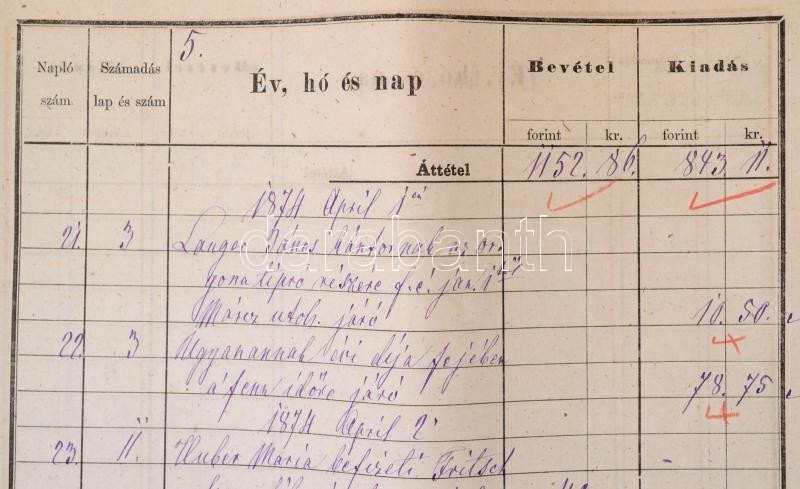 5.
Napló szám.
Számadás lap és szám
Év, hó és nap
Bevétel
Kiadás
forint kr. forint kr.
Áttétel 1152. 86. 843. 11.
1874 April 1
21. 3 János kántornak az or-
gona tipró részére f. é. jan. 1
Márcz utols. járó 10. 50.
22. 3 Ugyanannak évi díja fejében
a fenn időre járó 78. 75
1874 April 2
23. 11. Huber Maria befizeti Fritsch
darabanth